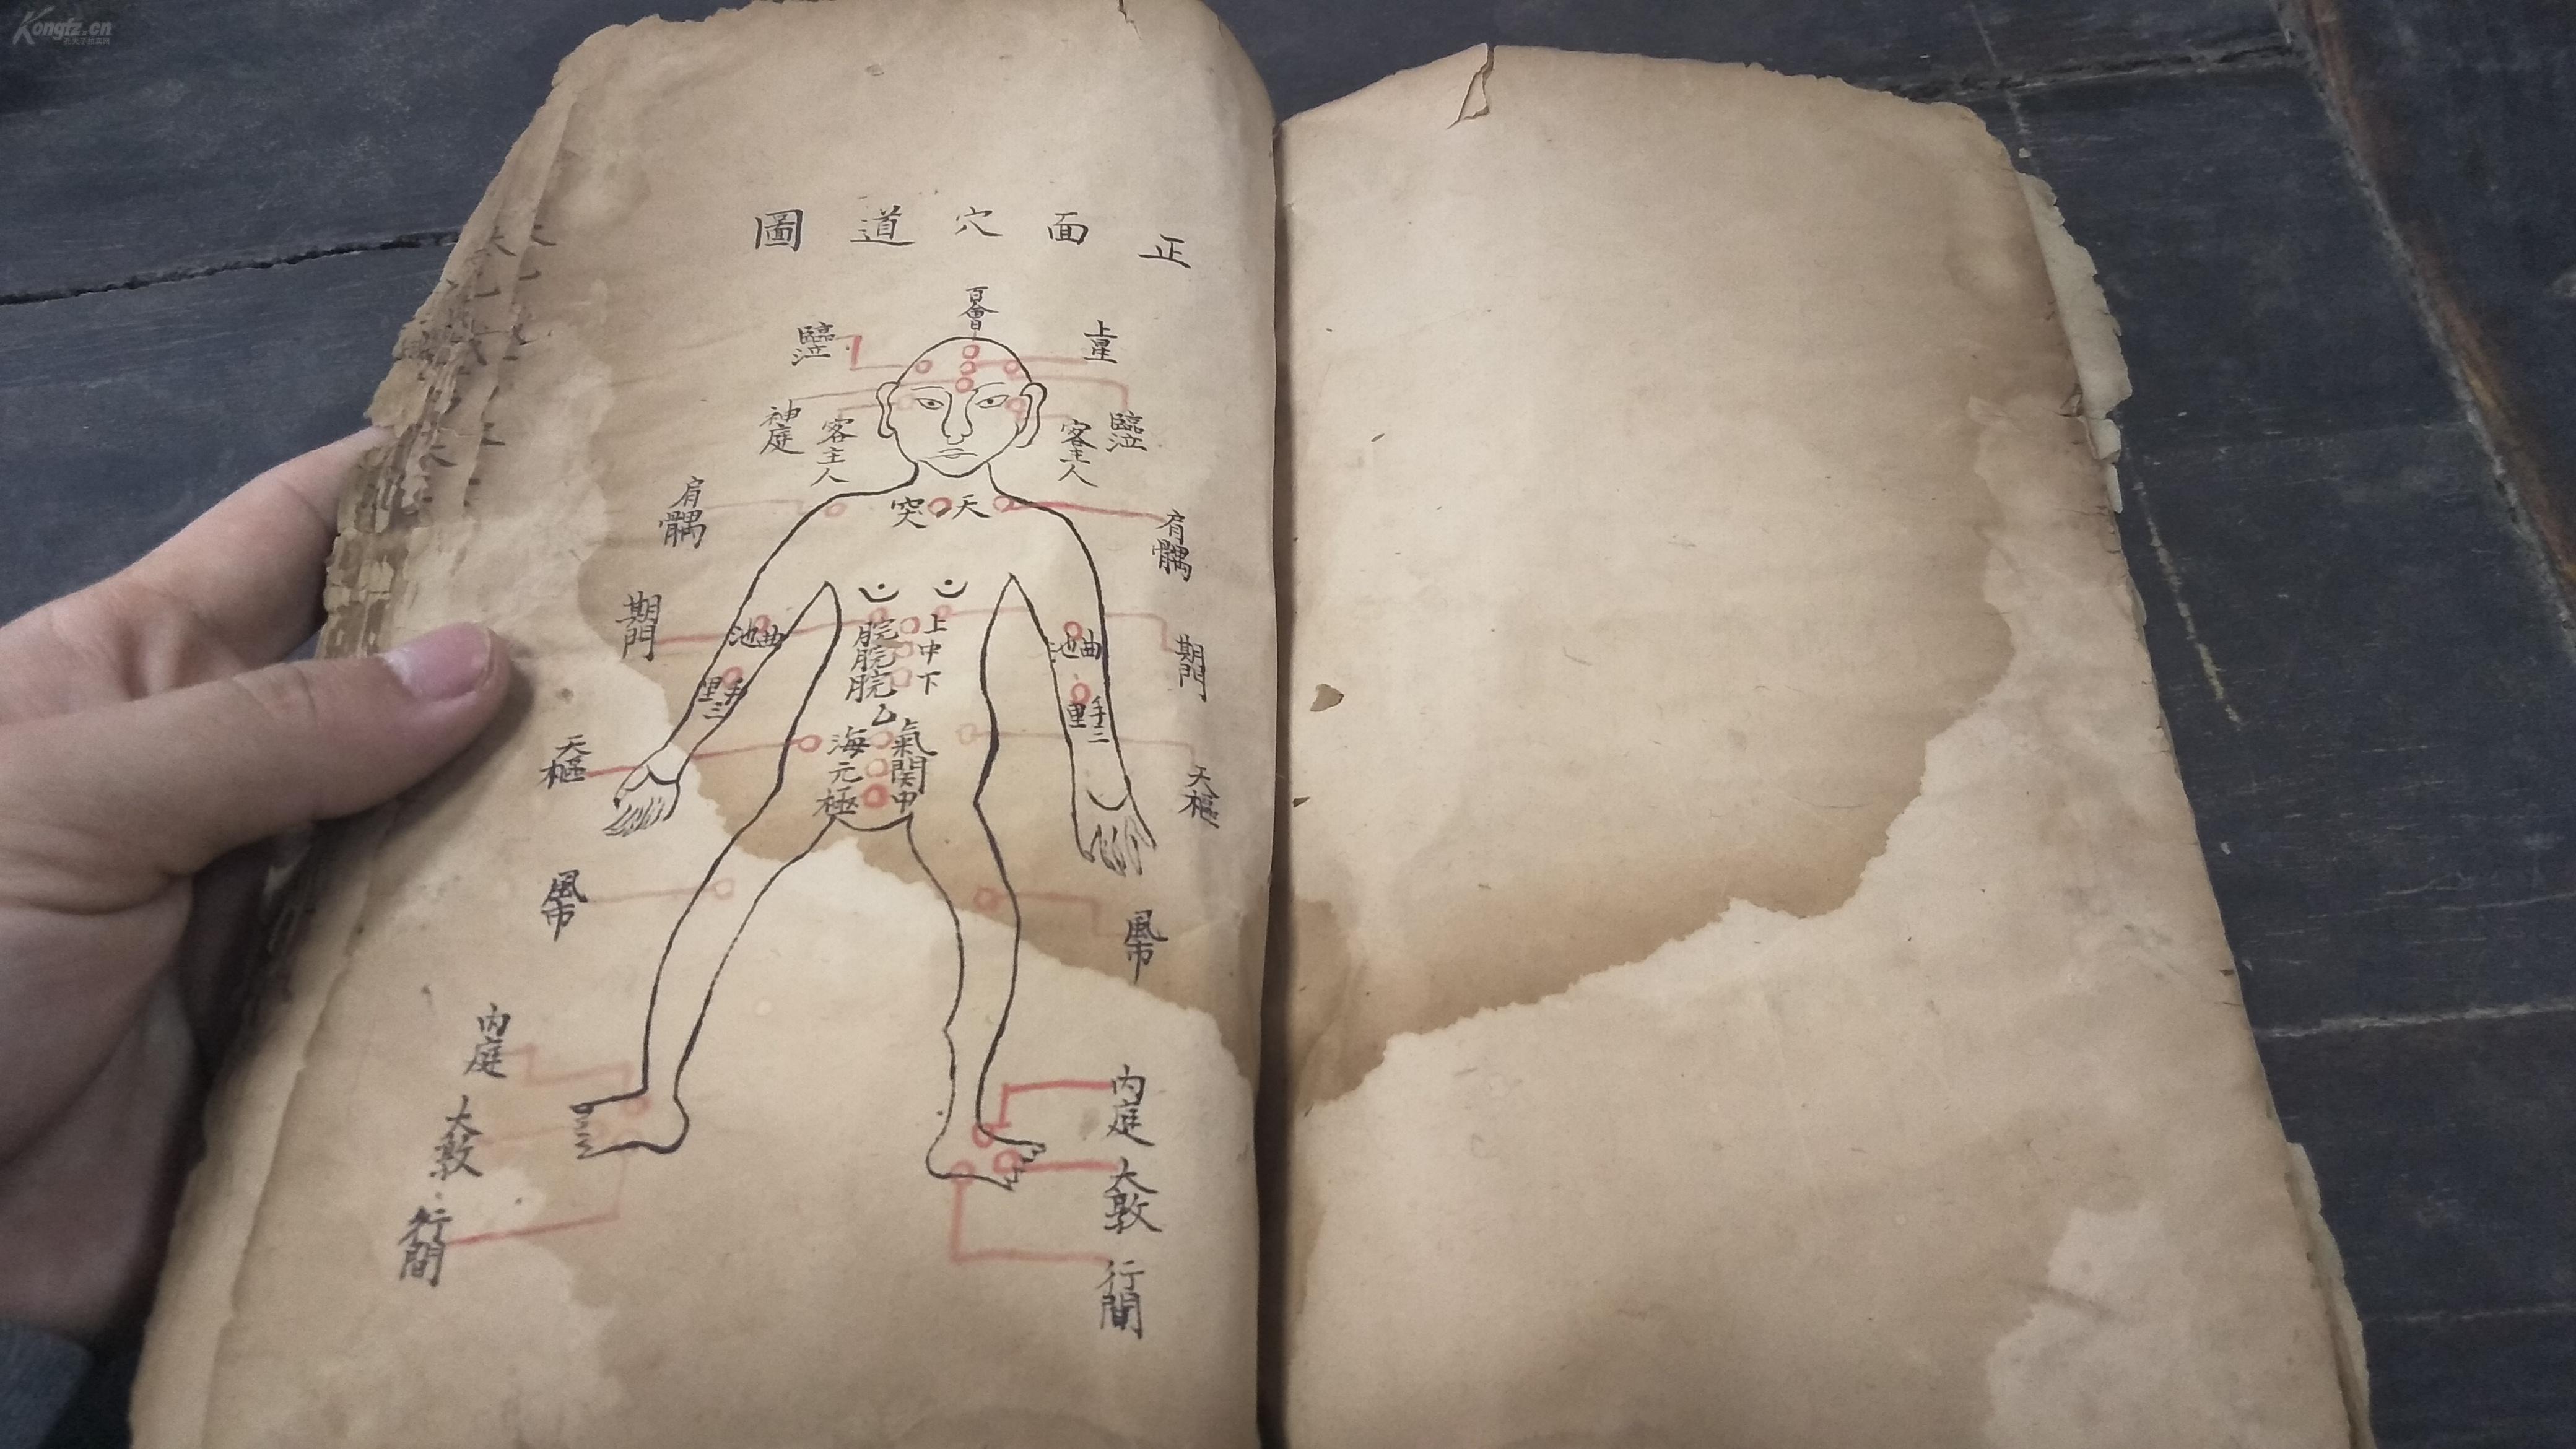 Kongfz.cn
孔夫子旧书网
正面穴道圖
百會
上星
臨泣
臨泣
神庭
客主人
客主人
天突
肩髃
肩髃
期門
期門
曲池
曲池
上脘
中脘
下脘
手三里
手三里
天樞
天樞
氣海
関元
中極
風市
風市
內庭
內庭
大敦
大敦
行間
行間